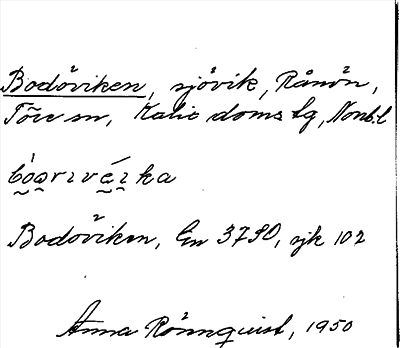 Bodöviken, sjövik, Rånön,
Töre sn, Kalix doms lg, Nonb.l
Bodöviken, En 3790, sjk 102
Anna Rönnquist, 1950